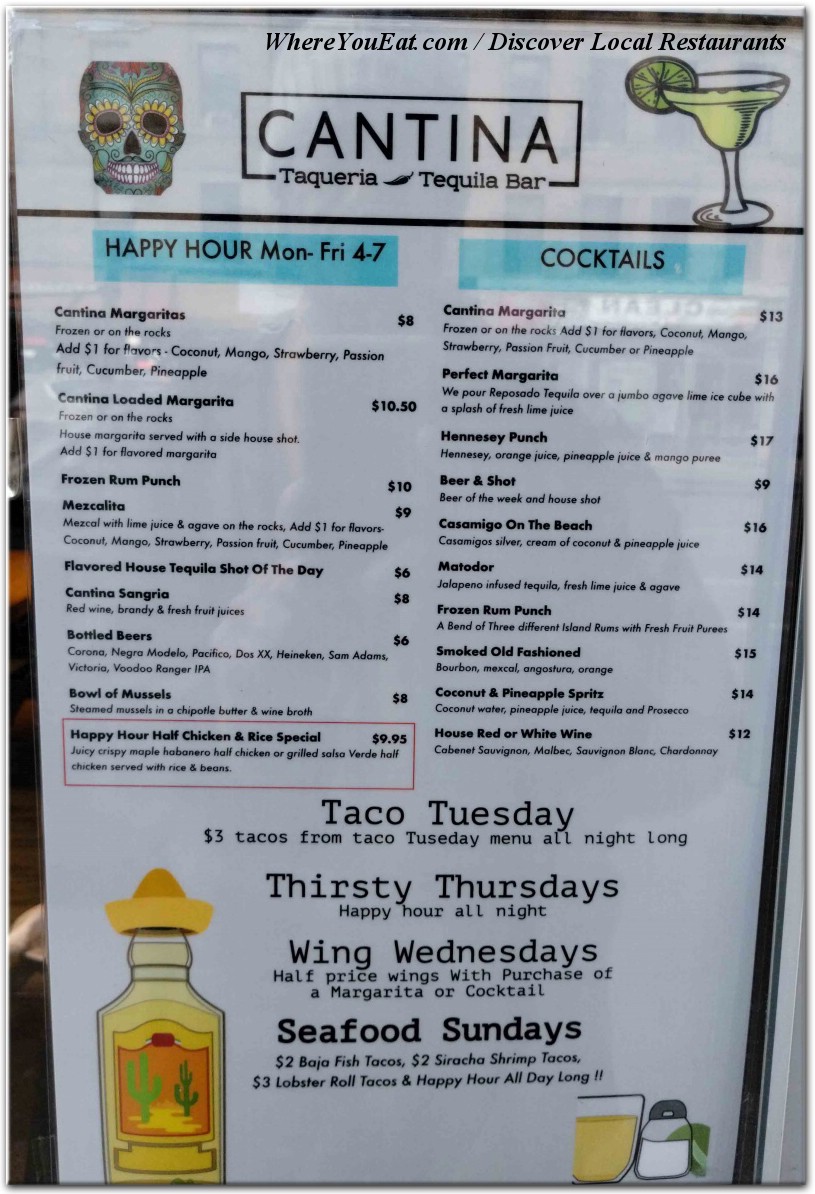 WhereYouEat.com / Discover Local Restaurants
CANTINA
Taqueria Tequila Bar
HAPPY HOUR Mon- Fri 4-7
Cantina Margaritas $8
Frozen or on the rocks
Add $1 for flavors - Coconut, Mango, Strawberry, Passion
fruit, Cucumber, Pineapple
Cantina Loaded Margarita $10.50
Frozen or on the rocks
House margarita served with a side house shot.
Add $1 for flavored margarita
Frozen Rum Punch $10
Mezcalita $9
Mezcal with lime juice & agave on the rocks, Add $1 for flavors-
Coconut, Mango, Strawberry, Passion fruit, Cucumber, Pineapple
Flavored House Tequila Shot Of The Day $6
Cantina Sangria $8
Red wine, brandy & fresh fruit juices
Bottled Beers $6
Corona, Negra Modelo, Pacifico, Dos XX, Heineken, Sam Adams,
Victoria, Voodoo Ranger IPA
Bowl of Mussels $8
Steamed mussels in a chipotle butter & wine broth
Happy Hour Half Chicken & Rice Special $9.95
Juicy crispy maple habanero half chicken or grilled salsa Verde half
chicken served with rice & beans.
COCKTAILS
Cantina Margarita $13
Frozen or on the rocks Add $1 for flavors, Coconut, Mango,
Strawberry, Passion Fruit, Cucumber or Pineapple
Perfect Margarita $16
We pour Reposado Tequila over a jumbo agave lime ice cube with
a splash of fresh lime juice
Hennesey Punch $17
Hennesey, orange juice, pineapple juice & mango puree
Beer & Shot $9
Beer of the week and house shot
Casamigo On The Beach $16
Casamigos silver, cream of coconut & pineapple juice
Matodor $14
Jalapeno infused tequila, fresh lime juice & agave
Frozen Rum Punch $14
A Bend of Three different Island Rums with Fresh Fruit Purees
Smoked Old Fashioned $15
Bourbon, mexcal, angostura, orange
Coconut & Pineapple Spritz $14
Coconut water, pineapple juice, tequila and Prosecco
House Red or White Wine $12
Cabenet Sauvignon, Malbec, Sauvignon Blanc, Chardonnay
Taco Tuesday
$3 tacos from taco Tuseday menu all night long
Thirsty Thursdays
Happy hour all night
Wing Wednesdays
Half price wings With Purchase of
a Margarita or Cocktail
Seafood Sundays
$2 Baja Fish Tacos, $2 Siracha Shrimp Tacos,
$3 Lobster Roll Tacos & Happy Hour All Day Long !!